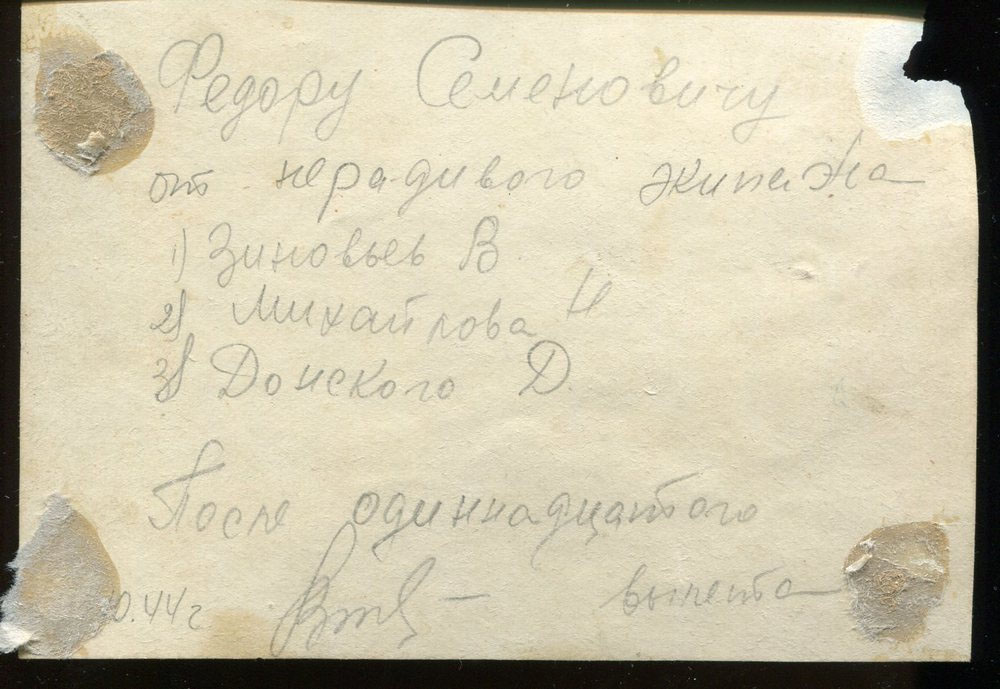 Федору Семеновичу
от нерадивого экипажа
1) Зиновьев В
2) Михайлова Н
3) Донского Д
После одиннадцатого
вылета
0.44 г